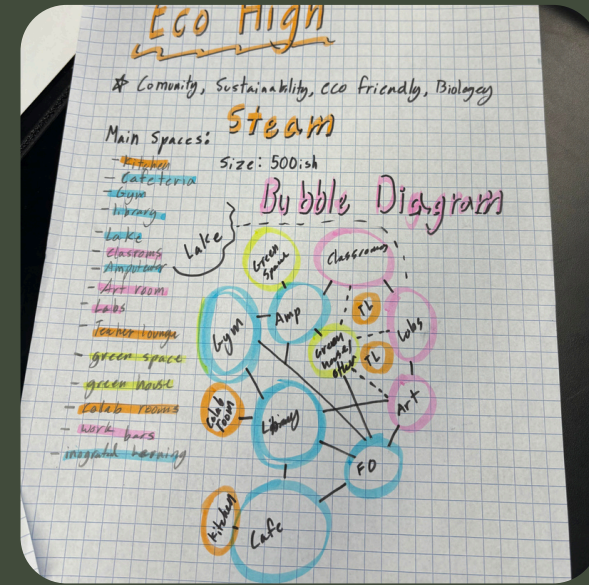 Eco High
☆ Comunity, Sustainability, eco friendly, Biologey
Steam
Main Spaces:
Size: 500ish
- Kitchen
- Cafeteria
- Gym
- library
- Lake
- classroms
- Art room
- Labs
- Teacher lounge
- green space
- green house
- Colab rooms
- work bars
Bubble Diagram
Lake
Green
Space
Classrooms
Gym
Amp
TL
Labs
Green
house/
other
TL
Colab
room
Library
Art
FO
Kitchen
Cafe